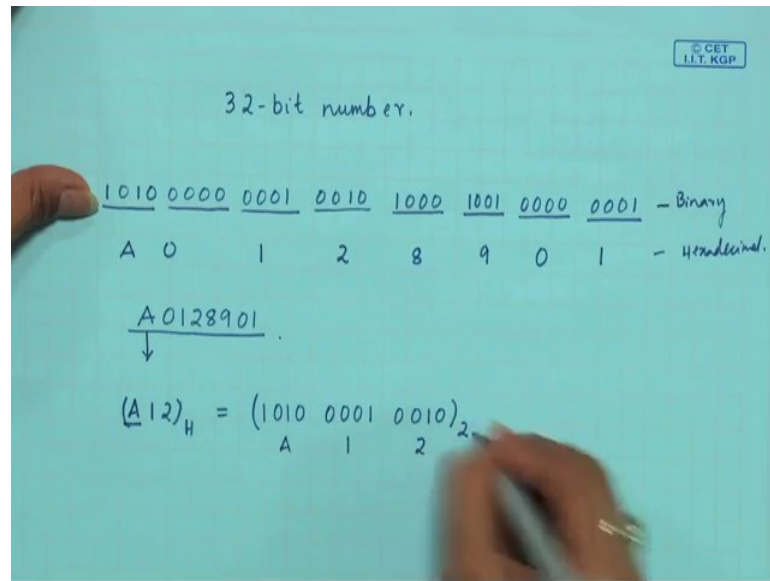 © CET
I.I.T. KGP
32-bit number.
1010 0000 0001 0010 1000 1001 0000 0001 - Binary
A 0 1 2 8 9 0 1 - Hexadecimal.
A0128901.
(A12)H = (1010 0001 0010)2
A 1 2